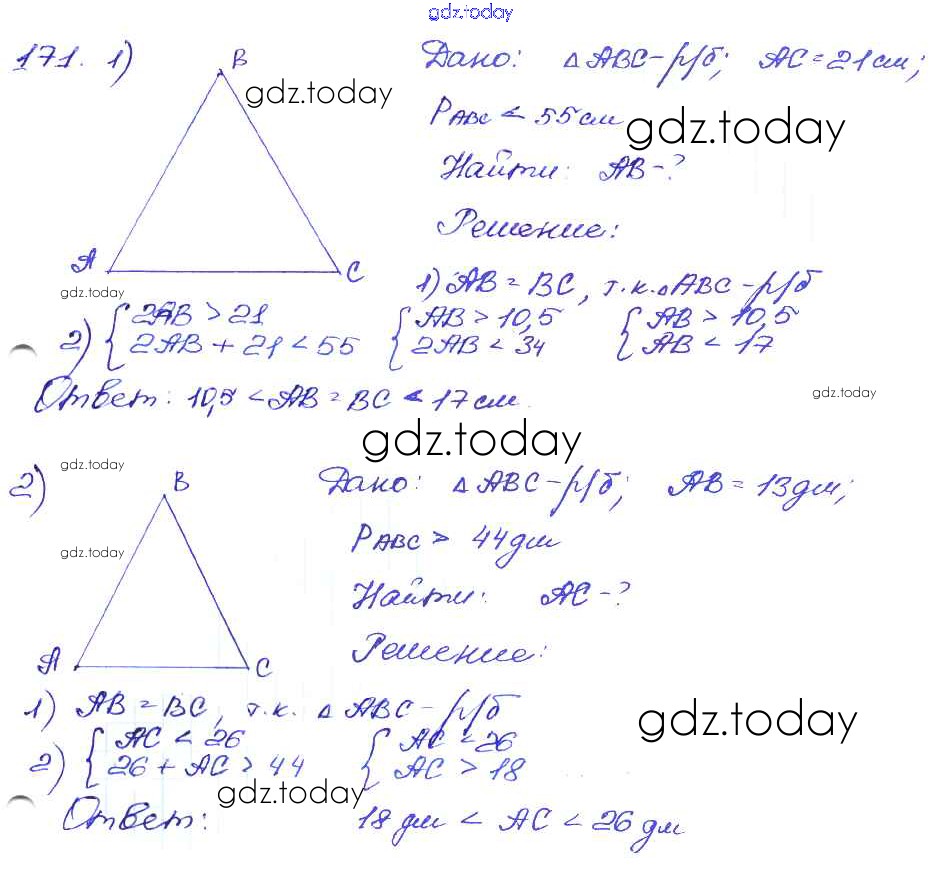 gdz.today
171. 1)
B
gdz.today
A
C
gdz.today
Дано: △ABC-р/б; AC=21см;
PABC < 55см
gdz.today
Найти: AB-?
Решение:
1) AB = BC, т.к. △ABC-р/б
2) { 2AB > 21 { AB > 10,5 { AB > 10,5
2AB + 21 < 55 2AB < 34 AB < 17
Ответ: 10,5 < AB = BC < 17см.
gdz.today
gdz.today
2)
gdz.today
B
gdz.today
A
C
Дано: △ABC-р/б; AB = 13дм;
PABC > 44дм
Найти: AC-?
Решение:
1) AB = BC, т.к. △ABC-р/б
gdz.today
2) { AC < 26 { AC < 26
26 + AC > 44 AC > 18
gdz.today
Ответ: 18 дм < AC < 26 дм